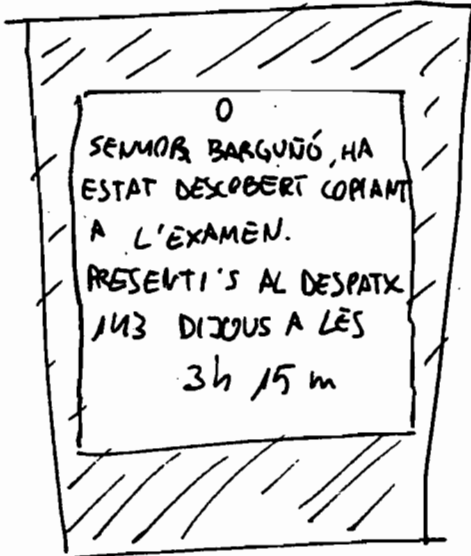 SENYOR BARGUÑÓ, HA
ESTAT DESCOBERT COPIANT
A L'EXAMEN.
PRESENTI'S AL DESPATX
143 DIJOUS A LES
3h 15 m